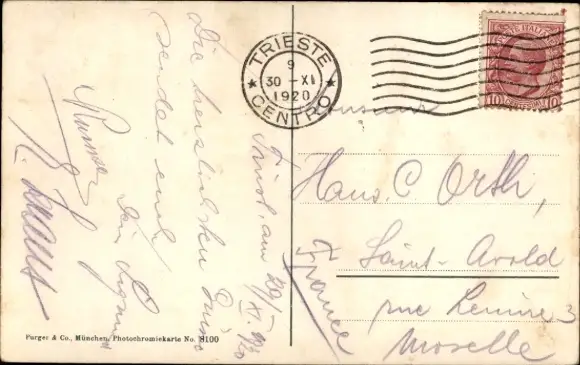 TRIESTE
9
30 - XI
1920
CENTRO
POSTE ITALIANE
10 10
Hans. C Orth,
Saint-Avold
rue
3
Moselle
France
Triest, am 29/XI. 920
Die herzlichsten Grüsse
sendet euch
dein
Purger & Co., München. Photochromiekarte No. 8100